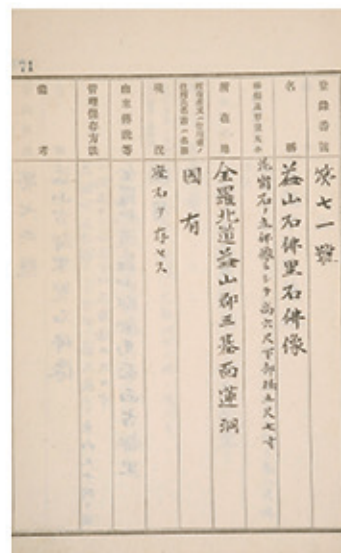 登錄番號
第七一號
名稱
益山石佛里石佛像
種類及形狀大小
花崗石ノ立佛像ニシテ高六尺下部幅五尺七寸
所在地
全羅北道益山郡三箕面蓮洞
國有
現況
座石ヲ存セス
由來傳說等
管理保存方法
備考